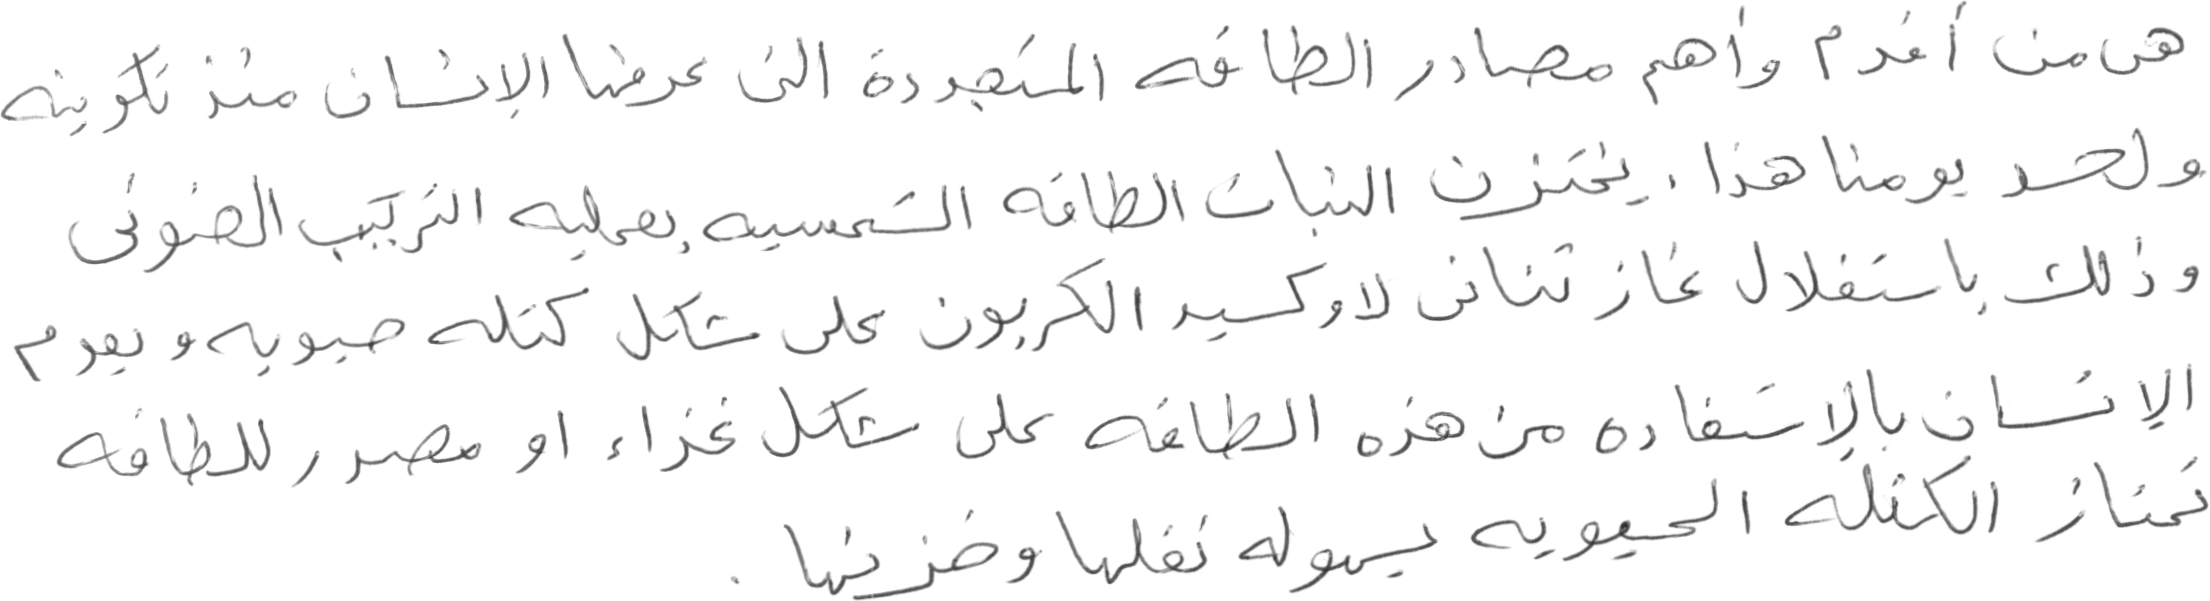 هى من أقدم وأهم مصادر الطاقه المتجددة التى عرفها الإنسان منذ تكوينه
ولحد يومنا هذا، يختزن النبات الطاقه الشمسيه بعمليه التركيب الضوئى
وذلك باستغلال غاز ثنائى لاوكسيد الكربون على شكل كتله حيويه ويقوم
الإنسان بالإستفاده من هذه الطاقه على شكل غذاء او مصدر للطاقه
تمتاز الكتله الحيويه بسهوله نقلها وخزنها .